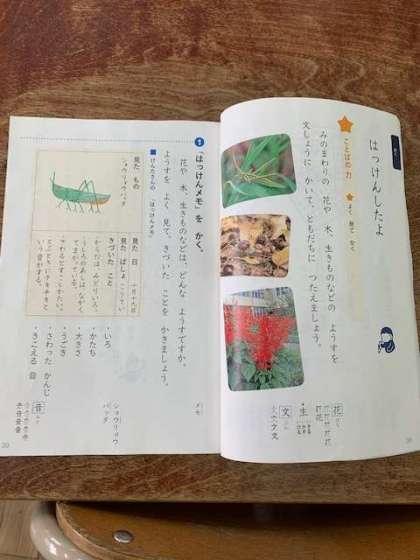 はっけんしたよ
ことばの力
よく見てかく
みのまわりの 花や 木、生きものなどの ようすを
文しょうに かいて、ともだちに つたえましょう。
花
生
文
1 「はっけんメモ」を かく。
花や 木、生きものなどは、どんな ようすですか。
ようすを よく 見て、気づいた ことを かきましょう。
げんたさんの「はっけんメモ」
見た もの
ショウリョウバッタ
見た 日 十月十九日
見た ばしょ こうてい
きづいた こと
からだは、みどりいろ。
さわるとすこしかたい。
とぶときにチキチキと
いう音がする。
・いろ
・かたち
・大きさ
・うごき
・さわった かんじ
・きこえる 音
メモ
ショウリョウ
バッタ
音